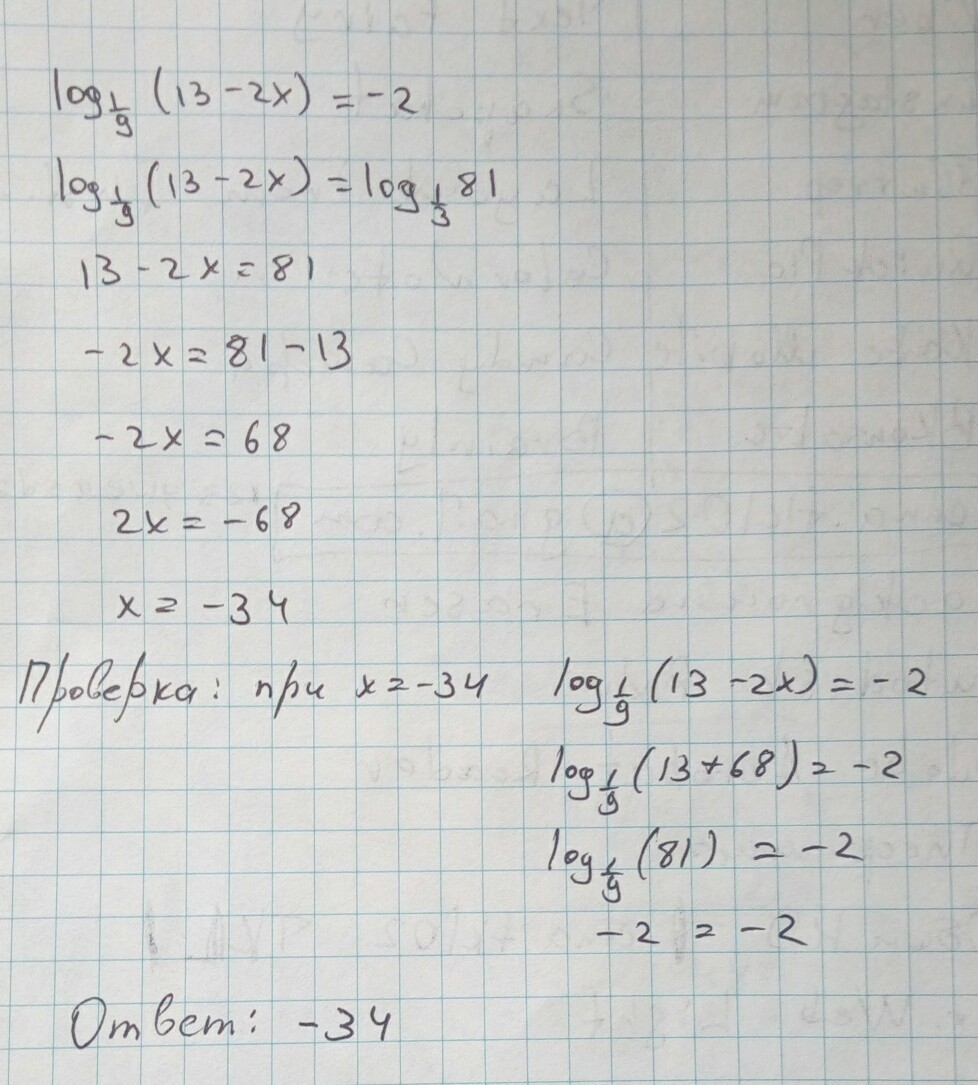 log₁/₉ (13 - 2x) = -2
log₁/₉ (13 - 2x) = log₁/₃ 81
13 - 2x = 81
-2x = 81 - 13
-2x = 68
2x = -68
x = -34
Проверка: при x = -34 log₁/₉ (13 - 2x) = -2
log₁/₉ (13 + 68) = -2
log₁/₉ (81) = -2
-2 = -2
Ответ: -34